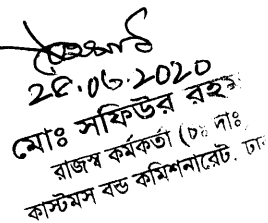 ২৫.০৬.2020
মোঃ সফিউর রহ
রাজস্ব কর্মকর্তা (চঃ দাঃ
কাস্টমস বন্ড কমিশনারেট, ঢা